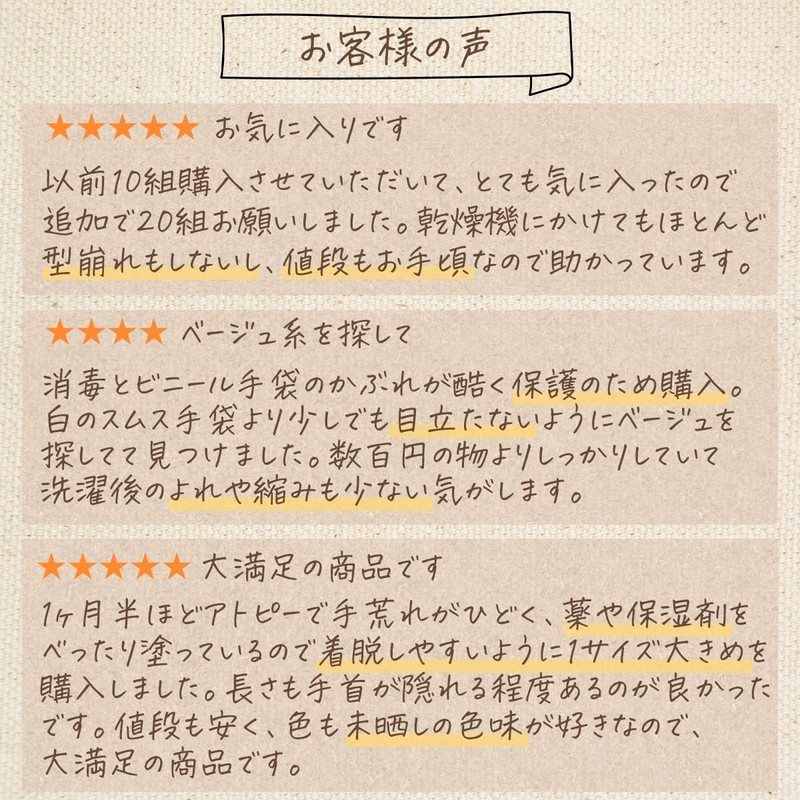 お客様の声
★★★★★ お気に入りです
以前10組購入させていただいて、とても気に入ったので
追加で20組お願いしました。乾燥機にかけてもほとんど
型崩れもしないし、値段もお手頃なので助かっています。
★★★★ ベージュ系を探して
消毒とビニール手袋のかぶれが酷く保護のため購入。
白のスムス手袋より少しでも目立たないようにベージュを
探してて見つけました。数百円の物よりしっかりしていて
洗濯後のよれや縮みも少ない気がします。
★★★★★ 大満足の商品です
1ヶ月半ほどアトピーで手荒れがひどく、薬や保湿剤を
べったり塗っているので着脱しやすいように1サイズ大きめを
購入しました。長さも手首が隠れる程度あるのが良かった
です。値段も安く、色も未晒しの色味が好きなので、
大満足の商品です。